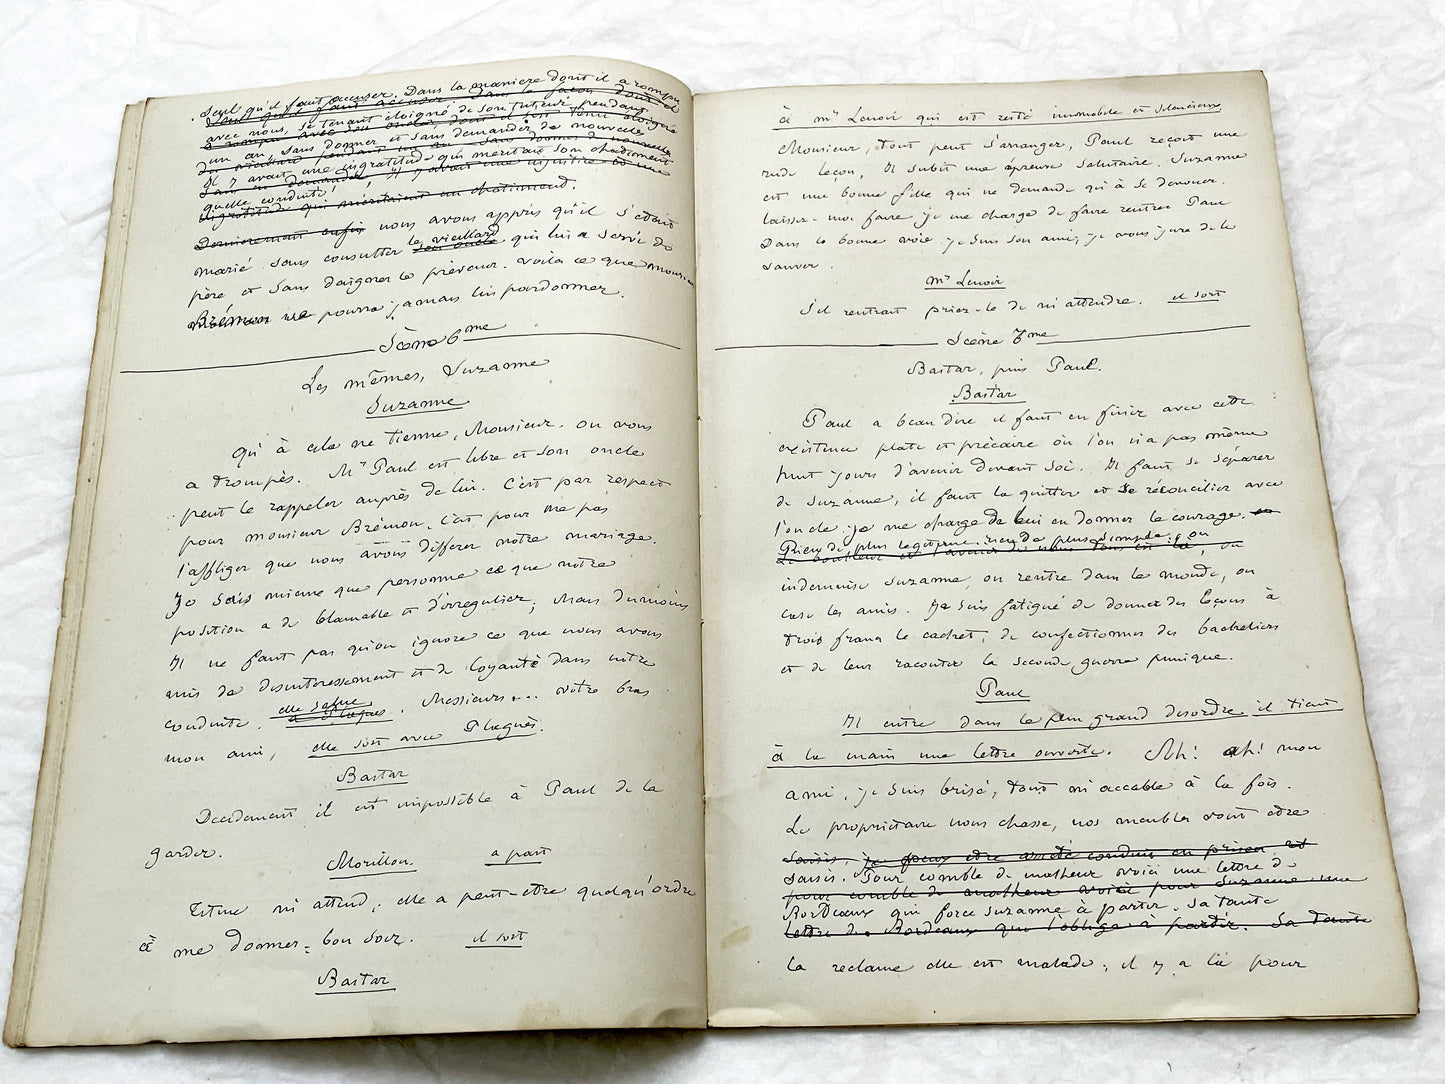 Seul qu'il faut accuser. Dans la maniere dont il a rompu
avec nous, se tenant éloigné de son tuteur pendant
un an, sans donner et sans demander de nouvelle
Il y avait une ingratitude qui meritait son chatiment
quelle conduite!
ingratitude qui meritaient un chatiment.
Dernierement enfin nous avons appris qu'il s'etait
marié sans consulter le vieillard qui lui a servi de
père, et sans daigner le prévenir. voila ce que monsieur
Brémon ne pourra jamais lui pardonner.
Scène 6me
Les mêmes, Suzanne
Suzanne
Qu'à cela ne tienne, Monsieur. on vous
a trompés. Mr Paul est libre et son oncle
peut le rappeler auprès de lui. C'est par respect
pour monsieur Brémon, c'est pour ne pas
l'affliger que nous avons differer notre mariage.
Je sais mieux que personne ce que notre
position a de blamable et d'irregulier; Mais du moins
Il ne faut pas qu'on ignore ce que nous avons
mis de desinteressement et de loyauté dans notre
conduite. elle salue. Messieurs... votre bras
mon ami, elle sort avec Plaguès.
Bastar
Decidement il est impossible à Paul de la
garder.
Morillon. a part
Titine m'attend; elle a peut-etre quelqu'ordre
à me donner = bon soir. il sort
Bastar
à mr Lenoir qui est resté immobile et silencieux
Monsieur, tout peut s'arranger, Paul reçoit une
rude leçon, Il subit une épreuve salutaire. Suzanne
est une bonne fille qui ne demande qu'à se devouer.
laissez-moi faire je me charge de faire rentrer Paul
Dans la bonne voie. je suis son ami, je vous jure de le
sauver.
mr Lenoir
S'il rentrait priez-le de m'attendre. il sort
Scène 7me
Bastar, puis Paul.
Bastar
Paul a beau dire il faut en finir avec cette
existence plate et précaire où l'on n'a pas même
huit jours d'avenir devant soi. Il faut se séparer
de Suzanne, il faut la quitter et se réconcilier avec
l'oncle je me charge de lui en donner le courage.
Rien de plus legitime rien de plus simple: on
indemnise Suzanne, on rentre dans le monde, on
case les amis. Je suis fatigué de donner des leçons à
trois francs le cachet, de confectionner des bacheliers
et de leur raconter la seconde guerre punique.
Paul
Il entre dans le plus grand desordre il tient
à la main une lettre ouverte. Ah! ah! mon
ami, je suis brisé, tout m'accable à la fois.
Le proprietaire nous chasse, nos meubles vont etre
saisis, je peux etre arrêté conduit en prison et
saisis. Pour comble de malheur voici une lettre de
pour comble de malheur voici pour Suzanne une
Bordeaux qui force Suzanne à partir. Sa tante
lettre de Bordeaux qui l'oblige à partir. Sa tante
la reclame elle est malade; il y a là pour